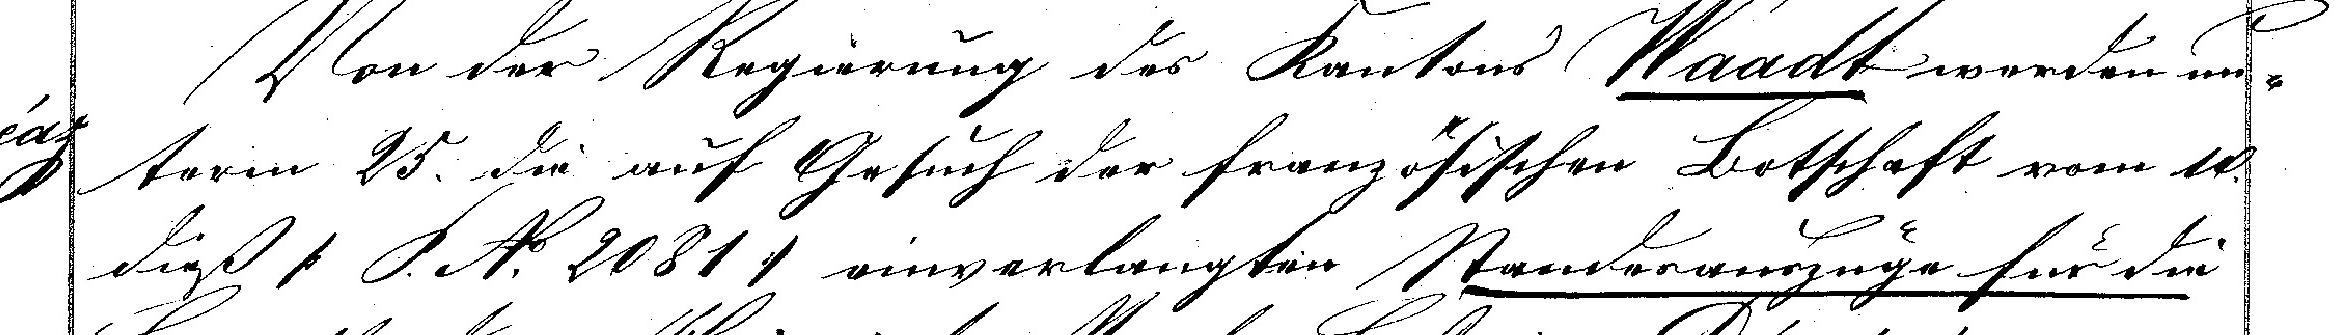 Von der Regierung des Kantons Waadt werden un-
term 25. die auf Gesuch der französischen Botschaft vom 11.
dieß /: P. No. 2081 :/ einverlangten Standesauszüge für die